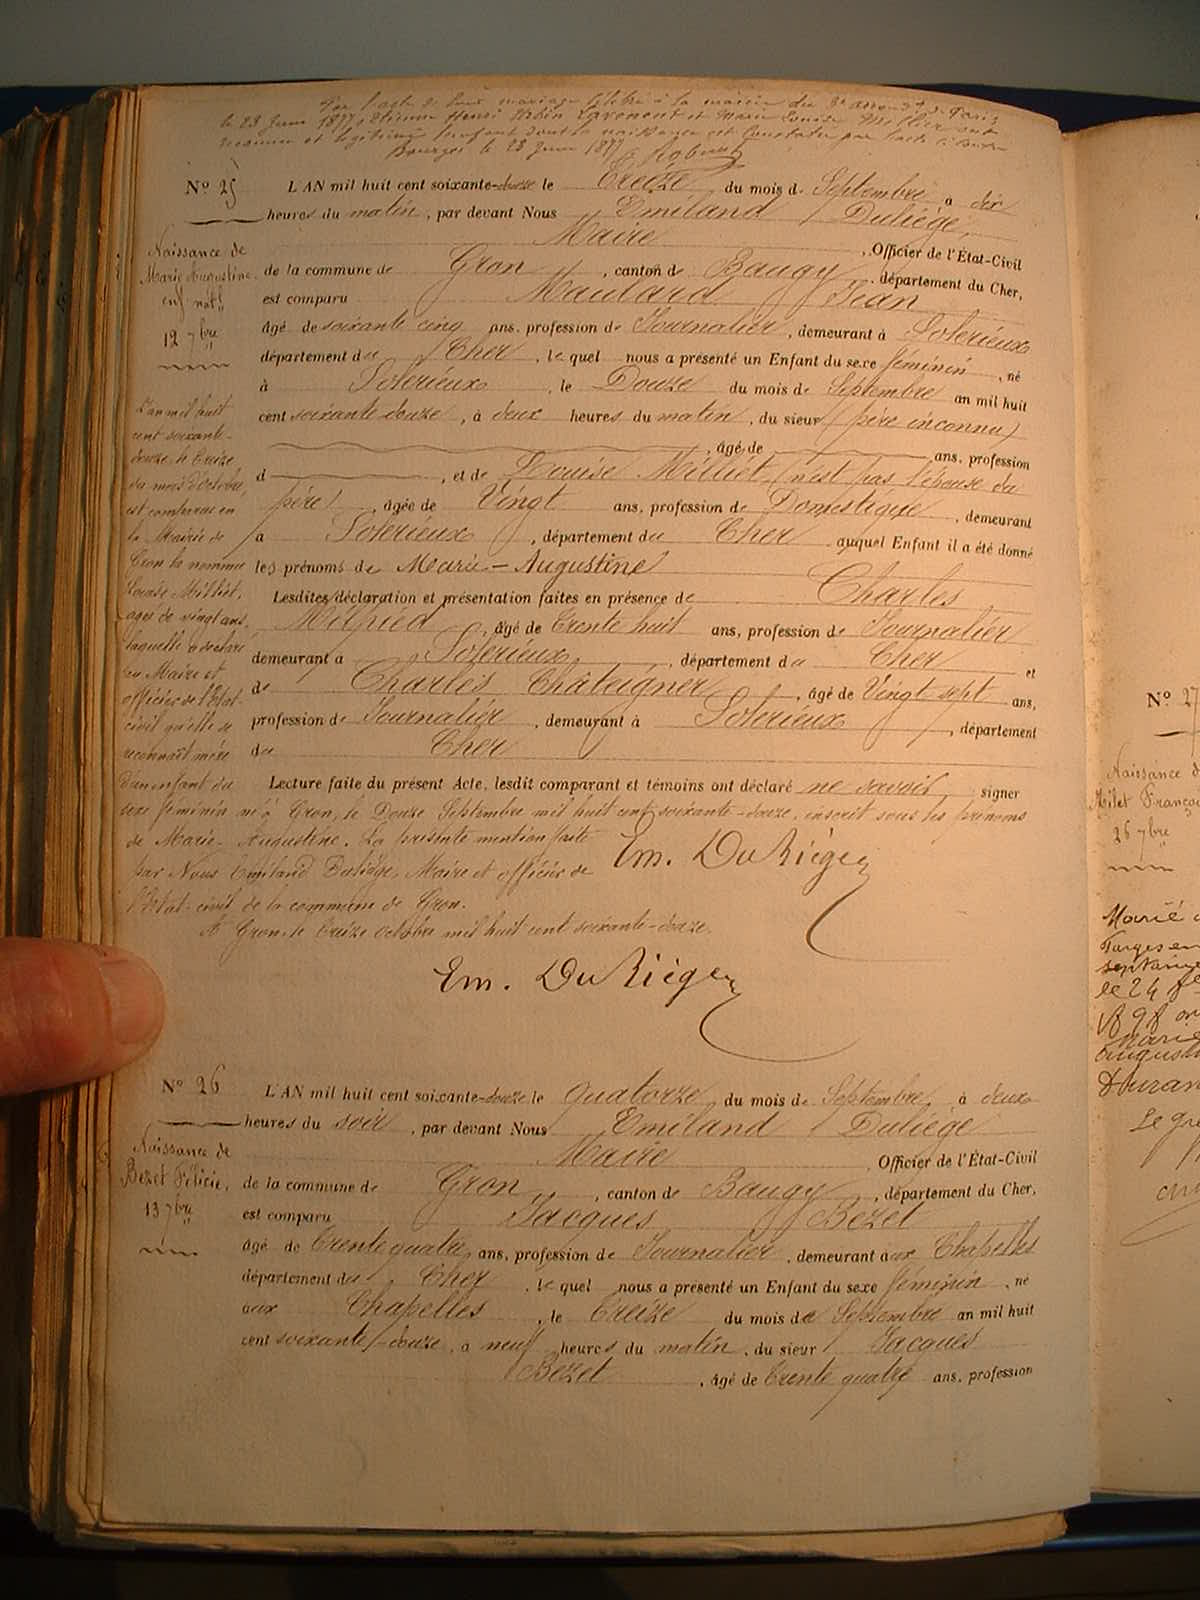 Par l'acte de leur mariage célébré à la mairie du 8e arrondt de Paris
le 23 Juin 1877, Etienne Henri Lavenent et Marie Louise ont
reconnu et légitimé l'enfant dont la naissance est constatée par l'acte ci-dessous
Bourges le 28 Juin 1877
Robert
No 25 L'AN mil huit cent soixante-douze le Treize du mois de Septembre à dix
heures du matin, par devant Nous Emiland Duliège,
Maire, Officier de l'État-Civil
de la commune de Gron, canton de Baugy, département du Cher,
est comparu Maulard Jean
âgé de soixante cinq ans, profession de Journalier, demeurant à Solerieux
département du Cher, lequel nous a présenté un Enfant du sexe féminin, né
à Solerieux, le Douze du mois de Septembre an mil huit
cent soixante douze, à deux heures du matin, du sieur (père inconnu)
, âgé de ans, profession
d , et de Louise Milliet (n'est pas l'épouse du
père), âgée de Vingt ans, profession de Domestique, demeurant
à Solerieux, département du Cher auquel Enfant il a été donné
les prénoms de Marie-Augustine
Lesdites déclaration et présentation faites en présence de Charles
Milpied, âgé de Trente huit ans, profession de Journalier
demeurant à Solerieux, département du Cher et
de Charles Châteigner, âgé de Vingt sept ans,
profession de Journalier, demeurant à Solerieux, département
du Cher
Lecture faite du présent Acte, lesdit comparant et témoins ont déclaré ne savoir signer
Em. Duliège
Naissance de
Marie Augustine
enf. natl
12 7bre
L'an mil huit
cent soixante-
douze, le treize
du mois d'Octobre,
est comparue en
la Mairie de
Gron la nommée
Louise Milliet,
agée de vingt ans,
laquelle a déclaré
au Maire et
officier de l'Etat-
civil qu'elle se
reconnaît mère
d'un enfant du
sexe féminin né à Gron, le Douze Septembre mil huit cent soixante-douze, inscrit sous les prénoms
de Marie-Augustine. La présente mention faite
par Nous Emiland Duliège, Maire et officier de
l'Etat-civil de la commune de Gron.
A Gron, le treize octobre mil huit cent soixante-douze.
Em. Duliège
No 26 L'AN mil huit cent soixante-douze le quatorze du mois de Septembre, à deux
heures du soir, par devant Nous Emiland Duliège
Maire, Officier de l'État-Civil
de la commune de Gron, canton de Baugy, département du Cher,
est comparu Jacques Bezet
âgé de Trente quatre ans, profession de Journalier, demeurant aux Chapelles
département du Cher, lequel nous a présenté un Enfant du sexe féminin, né
aux Chapelles, le Treize du mois de Septembre an mil huit
cent soixante-douze, à neuf heures du matin, du sieur Jacques
Bezet, âgé de Trente quatre ans, profession
Naissance de
Bezet Félicie,
13 7bre
No 27
Naissance d
Milet Franço
26 7bre
Marié à
Farges en
septaine
le 24
1898
Marie
August
Duran
Le gre